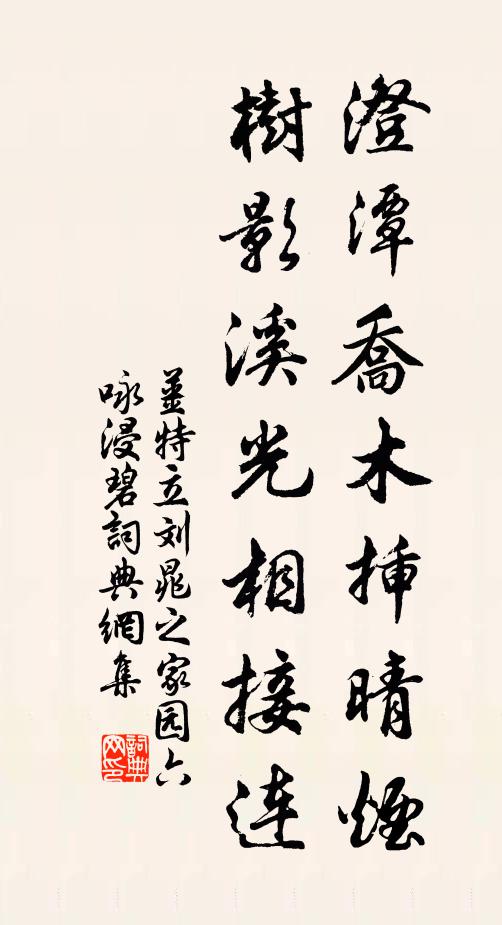 澄潭喬木插晴煙
樹影溪光相接連
姜特立刘晁之家园六
咏浸碧詞典網集
詞典
网印